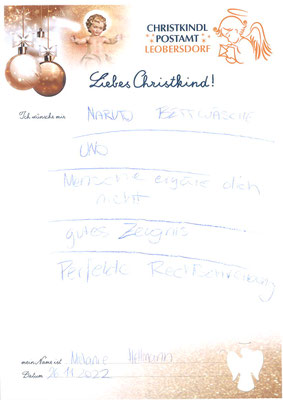 CHRISTKINDL
POSTAMT
LEOBERSDORF
Liebes Christkind!
Ich wünsche mir
NARUTO BETTWÄSCHE
UNO
Mensche ergäre dich
nicht
gutes Zeugnis
Perfekte Rechtschreibung
mein Name ist Melanie
Datum 26.11.2022